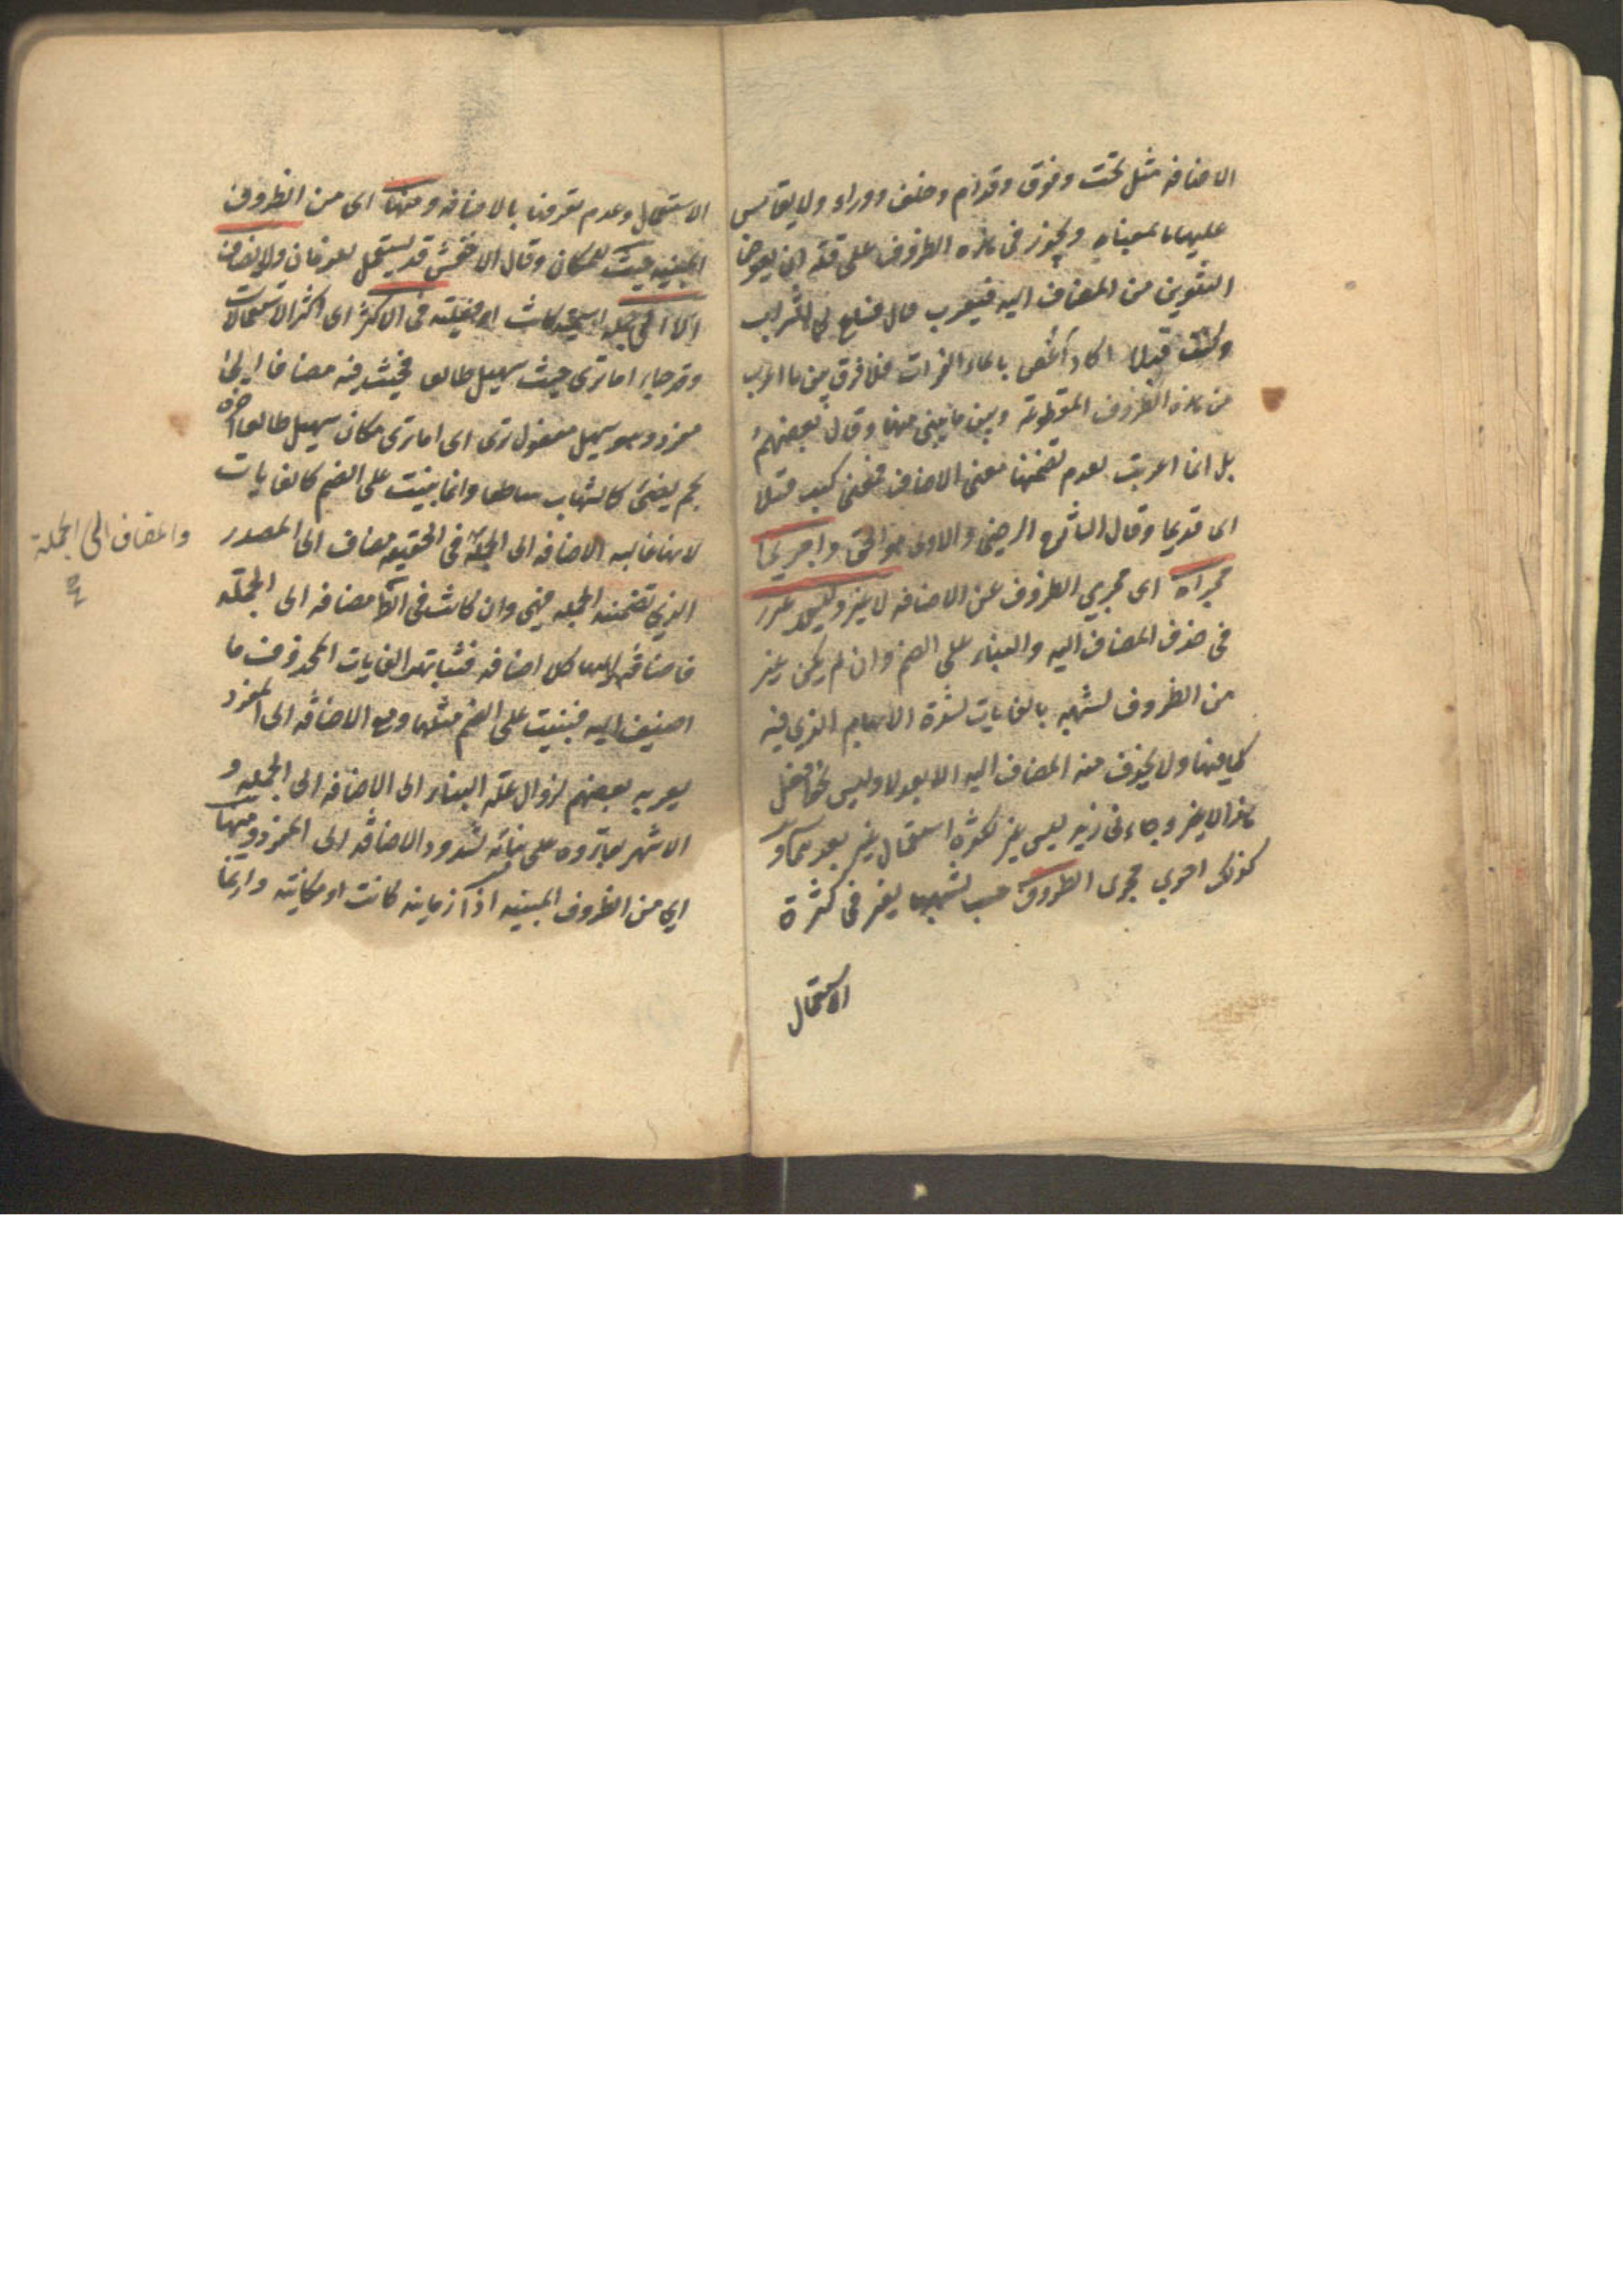 الاضافة مثل تحت وفوق وقدام وخلف ووراء ولا يقاس
عليها ما بمعناه ويجوز فى هذه الظروف على قلة ان يعوض
التنوين من المضاف اليه فيعرب قال فساغ لى الشراب
وكنت قبلا اكاد اغص بالماء الفرات فلا فرق بين ما اعرب
من هذه الظروف المقطوعة وبين ما بنى منها وقال بعضهم
بل انما اعربت لعدم تضمنها معنى الاضافة فمعنى كنت قبلا
اى قديما وقال الشارح الرضى والاول هو الحق واجرى
مجراه اى مجرى الظروف عن الاضافه لا غير وليس غير
فى حذف المضاف اليه والبناء على الضم وان لم يكن غير
من الظروف لشبهه بالغايات لشدة الابهام الذى فيه
كما فيها ولا يحذف منه المضاف اليه الا بعد لا وليس نحو افعل
هذا لا غير وجاءنى زيد ليس غير لكثرة استعمال غير بعدهما و
كذلك اجرى مجرى الظروف حسب لشبهها بغير فى كثرة
الاستعمال
الاستعمال وعدم تعرفها بالاضافه ومنها اى من الظروف
المبنيه حيث للمكان وقال الاخفش قد يستعمل للزمان ولا يضاف
الا الى جملة اسمية كانت او فعلية فى الاكثر اى اكثر الاستعمالات
وقد جاء اما ترى حيث سهيل طالعا فحيث فيه مضاف الى
مفرد وهو سهيل مفعول ترى اى اما ترى مكان سهيل طالعا آخره
نجم يضئ كالشهاب ساطعا وانما بنيت على الضم كالغايات
لانها غالبة الاضافه الى الجملة فى الحقيقه مضاف الى المصدر
والمضاف الى الجملة
الذى تضمنته الجمله فهى وان كانت فى الظاهر مضافه الى الجملة
فاضافتها اليها كلا اضافه فشابهت الغايات المحذوف ما
اضيف اليه فبنيت على الضم مثلها ومع الاضافة الى المفرد
يعربه بعضهم لزوال علة البناء اى الاضافه الى الجمله و
الاشهر بقاؤه على بنائه لشذوذ الاضافة الى المفرد ومنها
اى من الظروف المبنيه اذا زمانيه كانت او مكانيه وانما